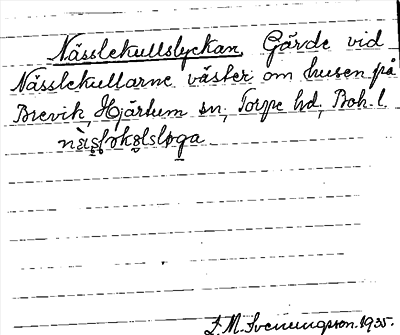 Nässlekullslyckan, Gärde vid
Nässlekullarne väster om husen på
Brevik, Hjärtum sn, Torpe hd, Boh. l.
F. M. Svenungsson. 1935.